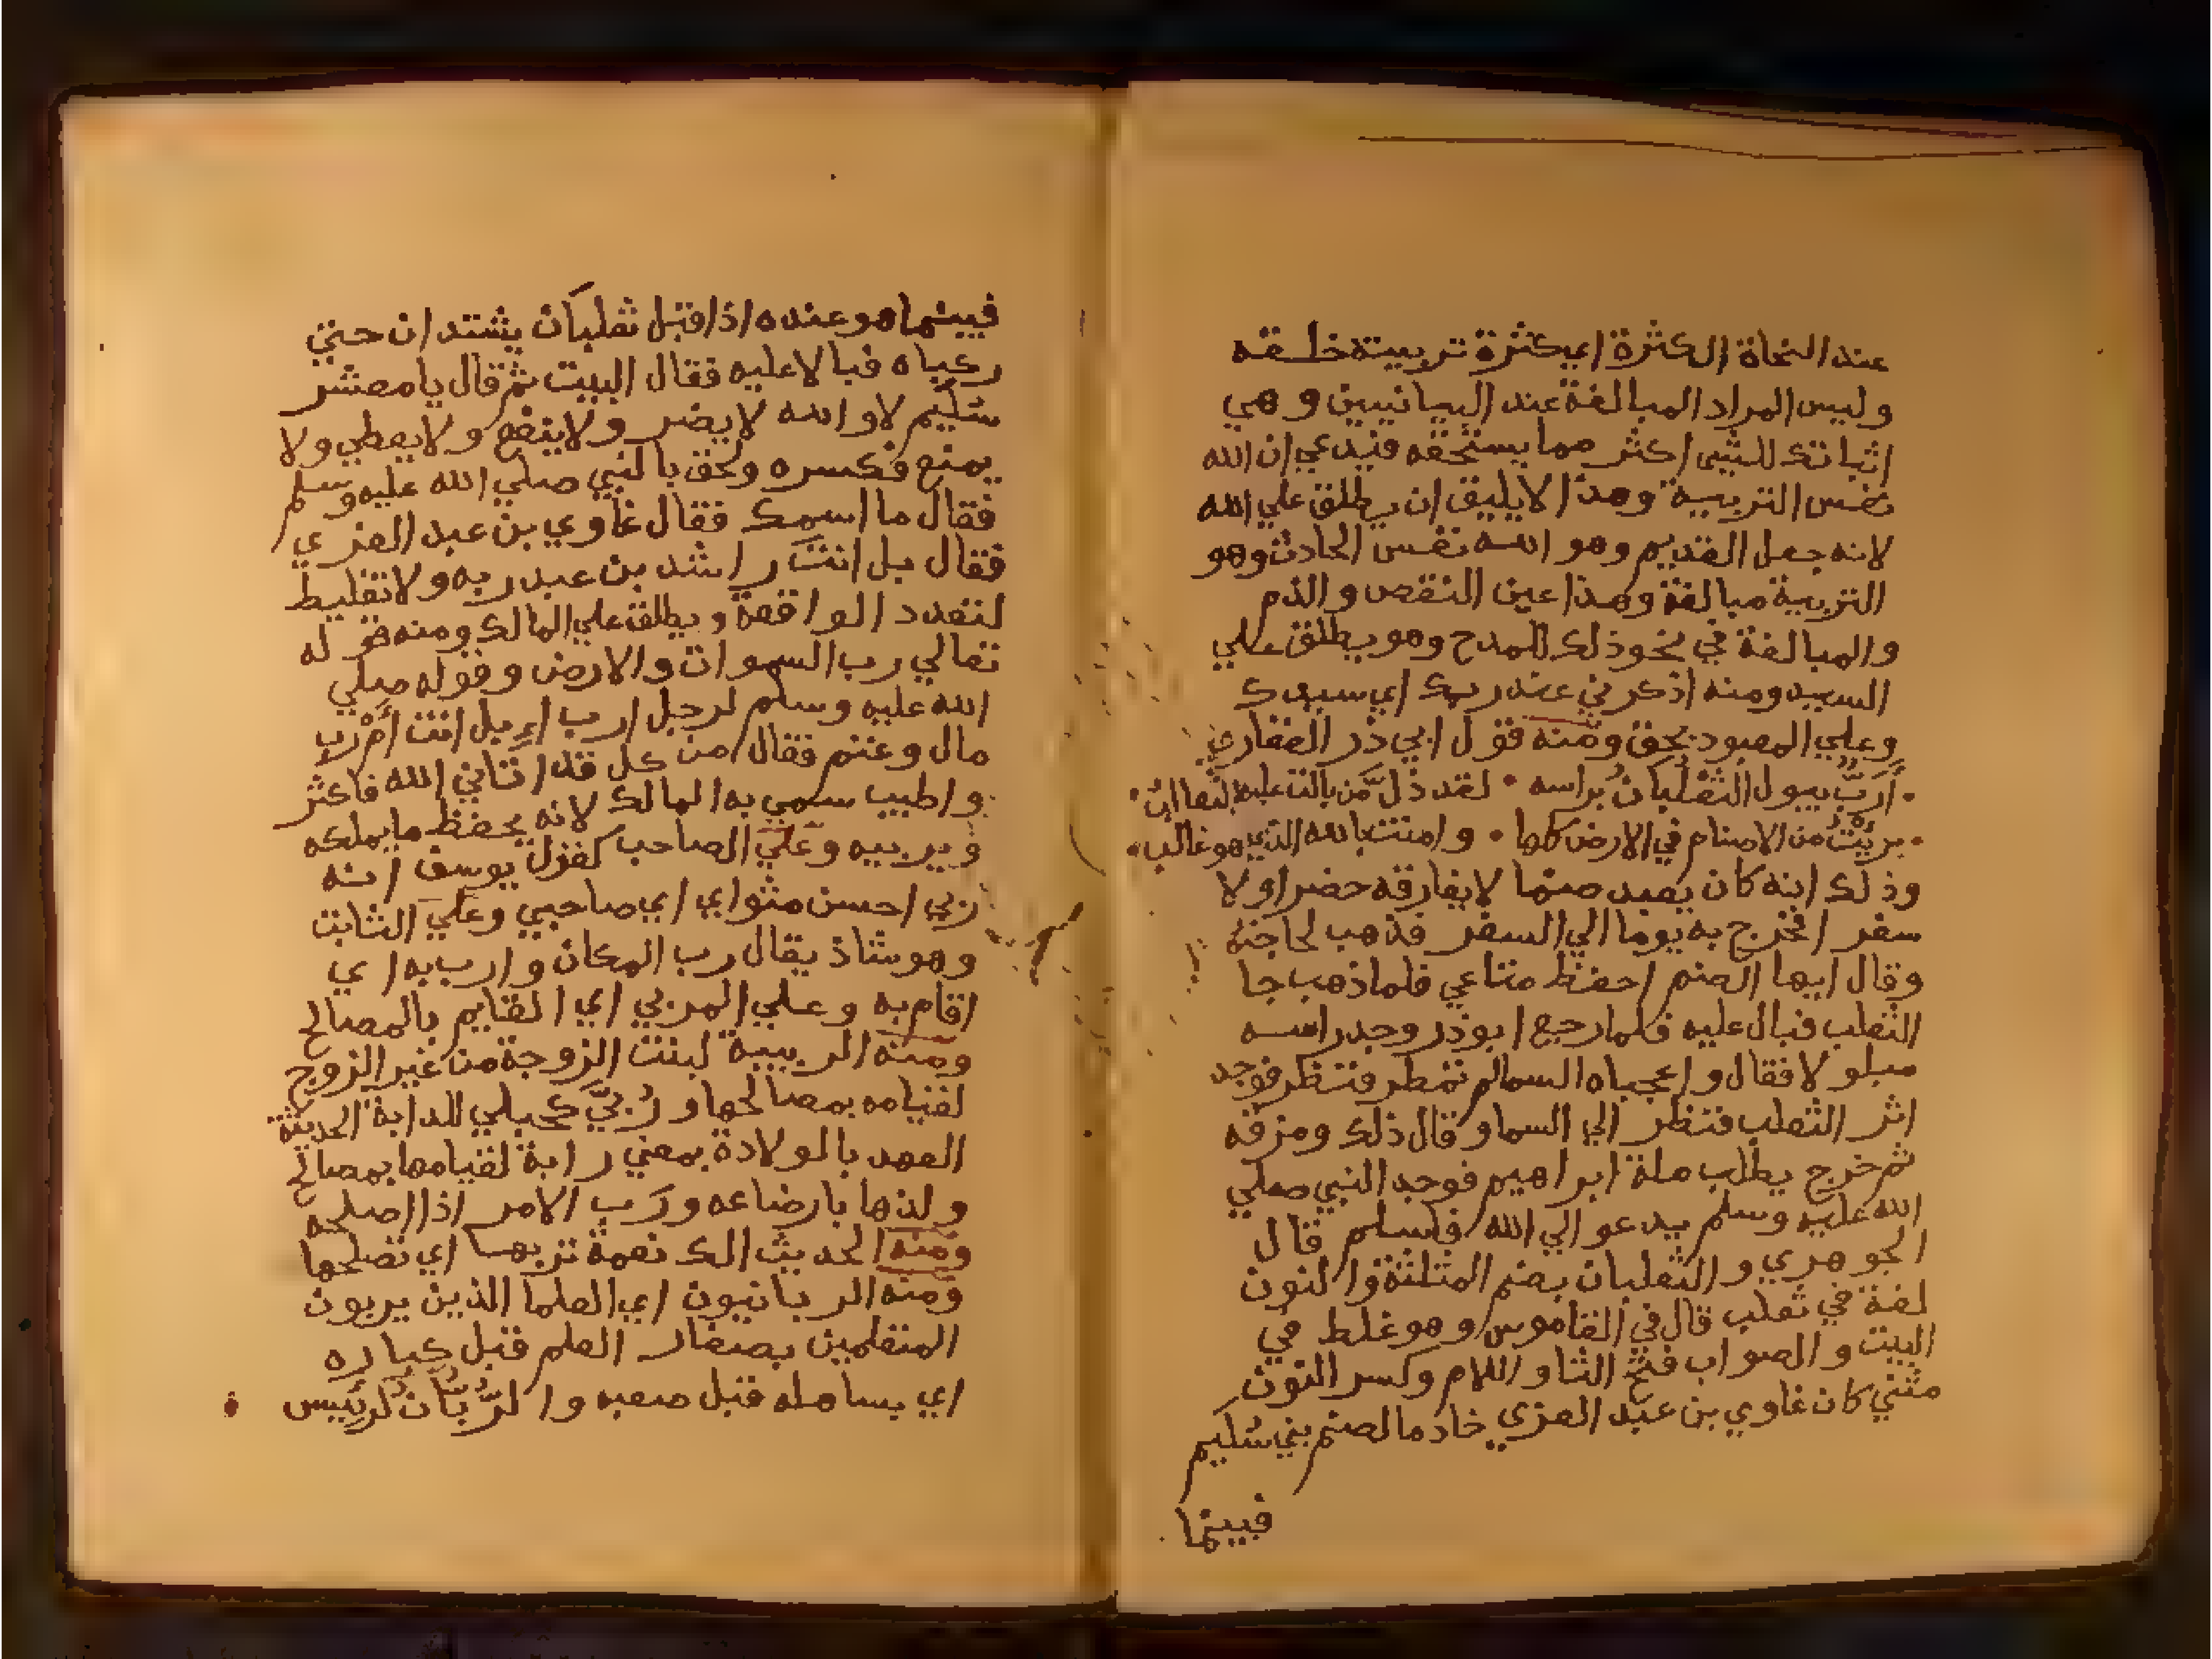 عند النحاة الكثرة اي كثرة تربيته خلقه
وليس المراد المبالغة عند البيانيين وهي
اثباتك للشي اكثر مما يستحقه فيدعي ان الله
نفس التربية وهذا لا يليق ان يطلق علي الله
لانه جعل القديم وهو الله نفس الحادث وهو
التربية مبالغة وهذا عين النقص والذم
والمبالغة في نحو ذلك للمدح وهو يطلق علي
السيد ومنه اذكرني عند ربك اي سيدك
وعلي المعبود بحق ومنه قول ابي ذر الغفاري
أرَبٌّ يبول الثعلبان برأسه • لقد ذل من بالت عليه الثعالب
بريت من الاصنام في الارض كلها • وامنت بالله الذي هو غالب
وذلك انه كان يعبد صنما لا يفارقه حضرا ولا
سفر افخرج به يوما الي السفر فذهب لحاجته
وقال ايها الصنم احفظ متاعي فلما ذهب جا
الثعلب فبال عليه فلما رجع ابوذر وجد راسه
مبلولا فقال واعجباه السما لم تمطر فنظر فوجد
اثر الثعلب فنظر الي السما وقال ذلك ومزقه
ثم خرج يطلب ملة ابراهيم فوجد النبي صلي
الله عليه وسلم يدعو الي الله فاسلم قال
الجوهري والثعلبان بضم المثلثة والنون
لغة في ثعلب قال في القاموس وهو غلط في
البيت والصواب فتح الثا واللام وكسر النون
مثني كان غاوي بن عبد العزي خادما لصنم بني سُلَيم
فبينما
فبينما هو عنده اذ اقبل ثعلبان يشتدان حتي
ركباه فبالا عليه فقال البيت ثم قال يا معشر
سُلَيم لا والله لا يضر ولا ينفع ولا يعطي ولا
يمنع فكسره ولحق بالنبي صلي الله عليه وسلم
فقال ما اسمك فقال غاوي بن عبد العزي
فقال بل انت راشد بن عبد ربه ولا تغليط
لتعدد الواقعة ويطلق علي المالك ومنه قوله
تعالي رب السموات والارض وقوله صلي
الله عليه وسلم لرجل ارب ابل انت أم رب
مال وغنم فقال من كل قد اتاني الله فاكثر
واطيب سمي به المالك لانه يحفظ ما يملكه
ويربيه وعلي الصاحب كقول يوسف انه
ربي احسن مثواي اي صاحبي وعلي الثابت
وهو شاذ يقال رب المكان وارب به اي
اقام به وعلي المربي اي القايم بالمصالح
ومنه الربيبة لبنت الزوجة من غير الزوج
لقيامه بمصالحها ورُبّي كحبلي للدابة الحديثة
العهد بالولادة بمعني رابة لقيامها بمصالح
ولدها بارضاعه ورَب الامر اذا اصلحه
ومنه الحديث الك نعمة تربها اي تصلحها
ومنه الربانيون اي العلما الذين يربون
المتعلمين بصغار العلم قبل كباره
اي بسهله قبل صعبه والرُّبّان لرئيس